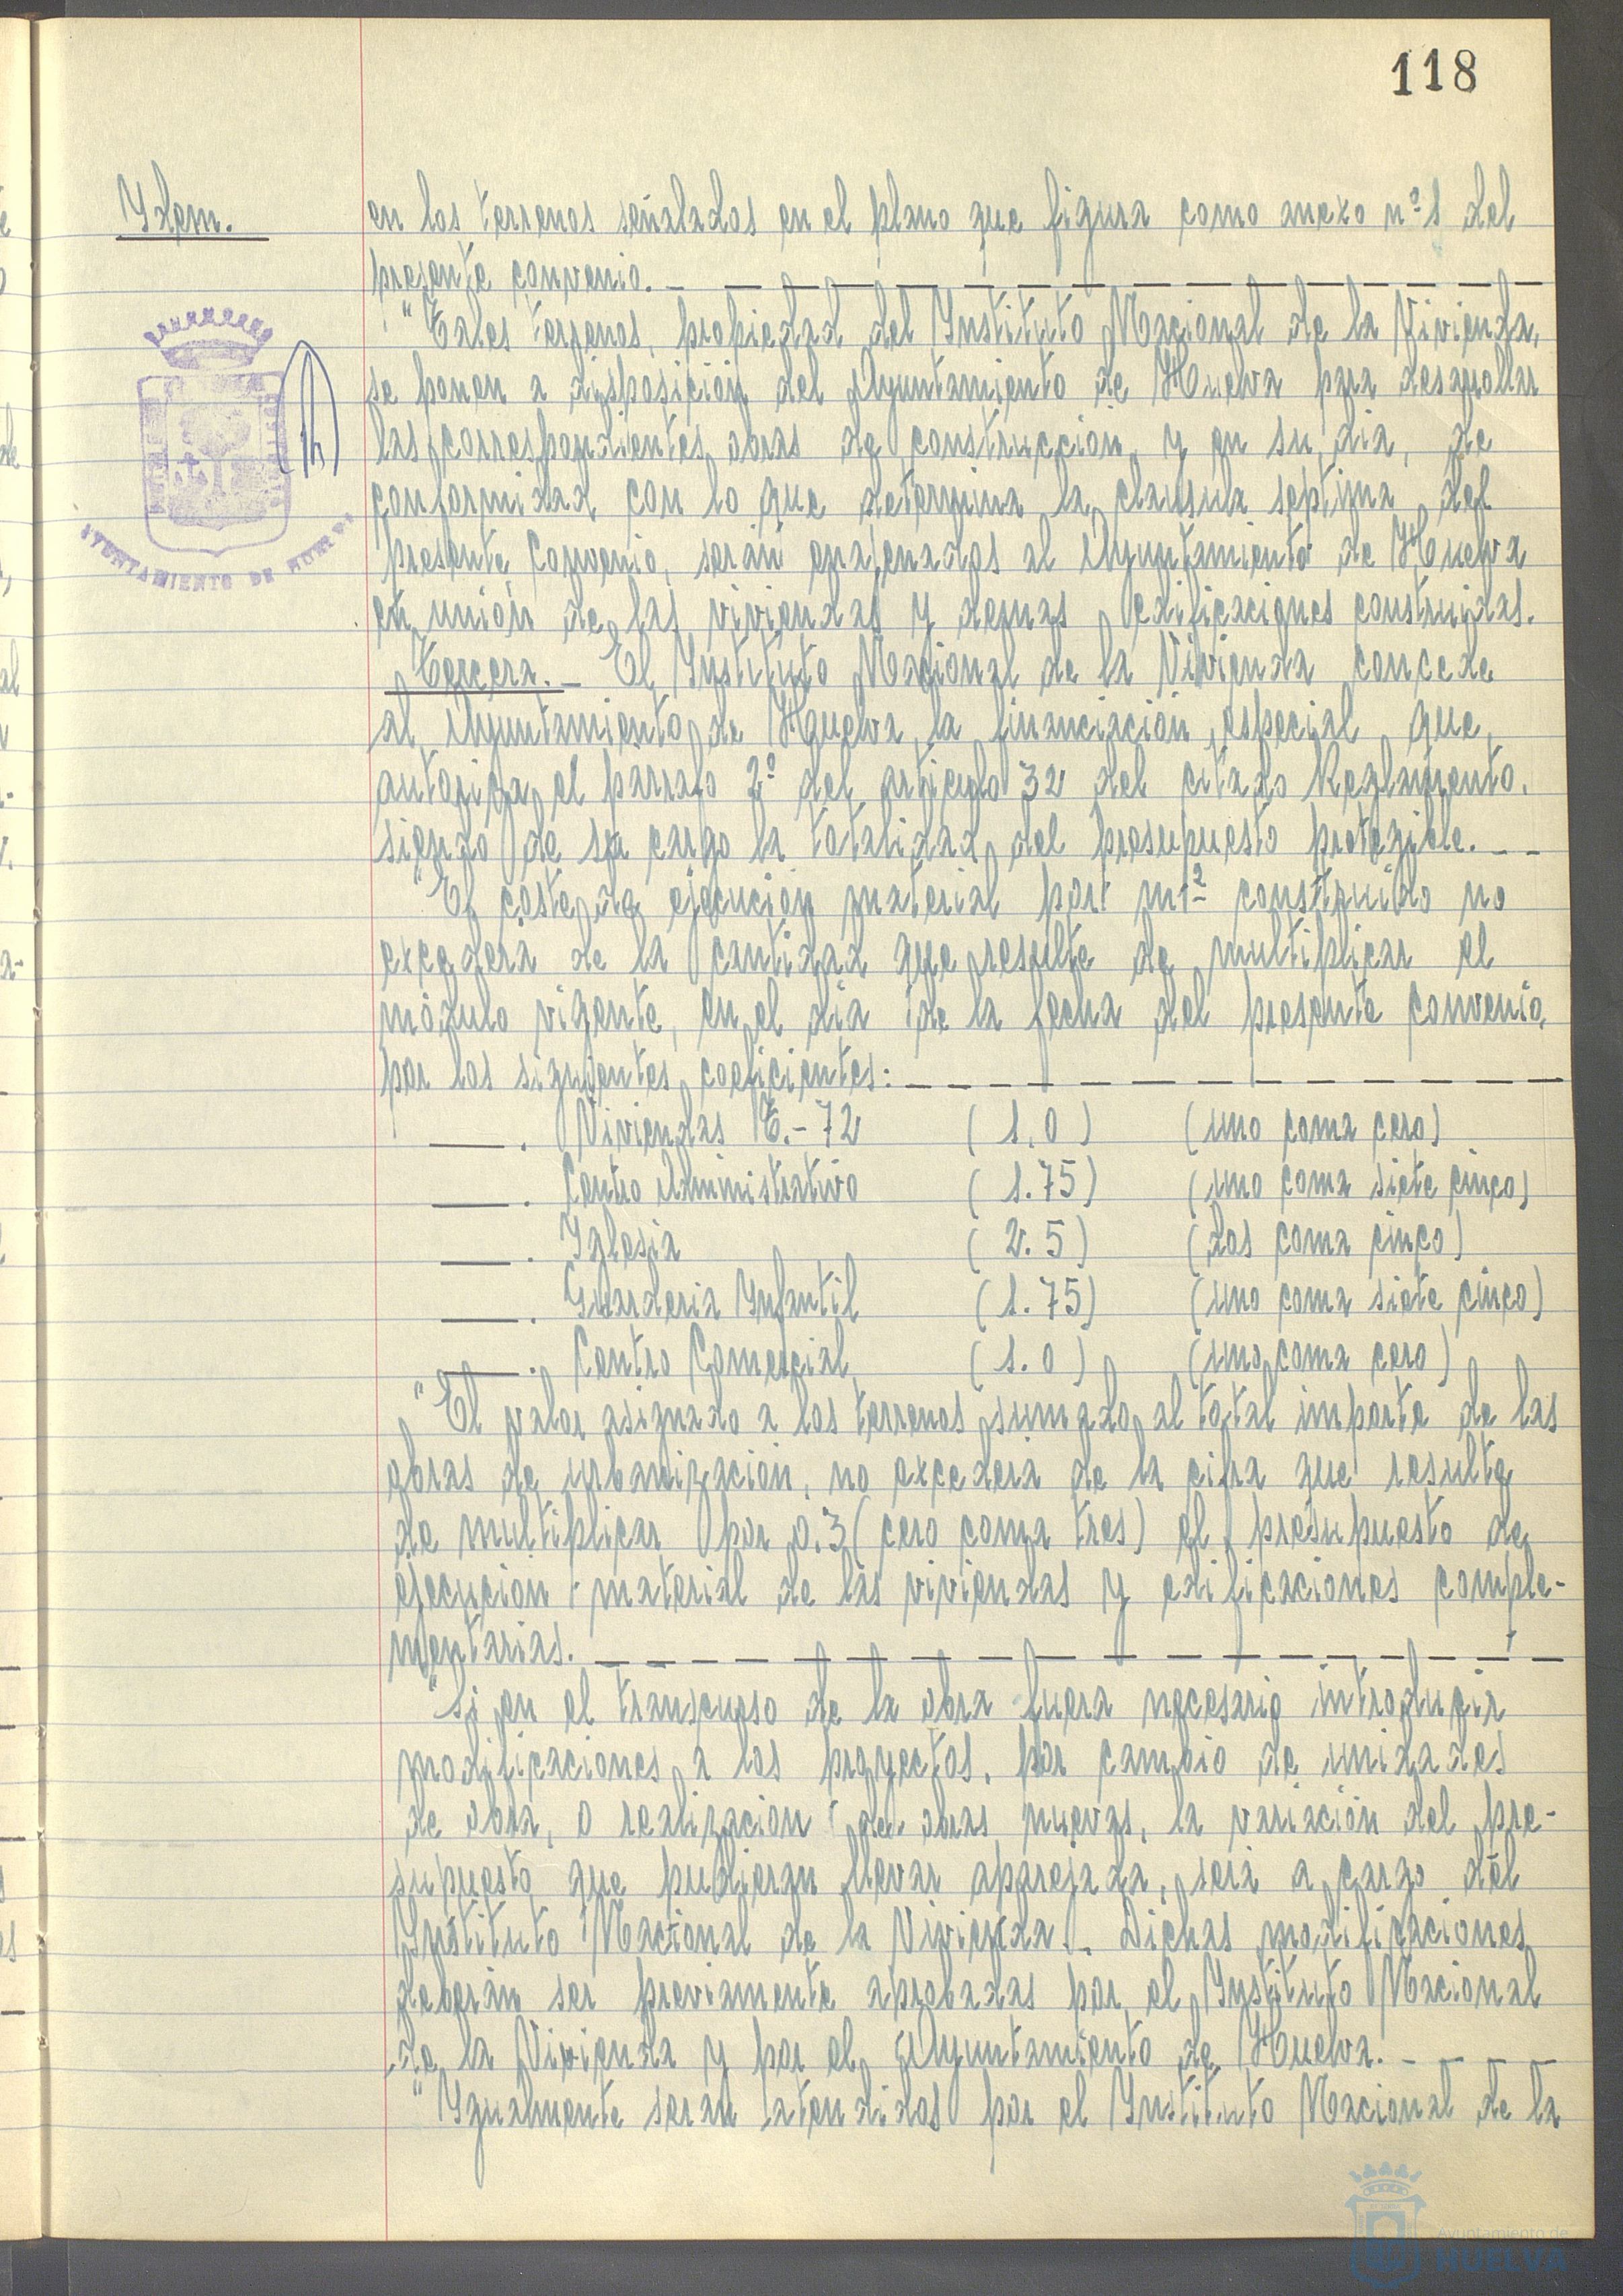 118
Ydem.
en los terrenos señalados en el plano que figura como anexo nº 1 del
presente convenio. _ _ _ _ _ _ _ _ _ _ _ _ _ _ _
"Tales terrenos, propiedad del Ynstituto Nacional de la Vivienda,
se ponen a disposición del Ayuntamiento de Huelva para desarrollar
las correspondientes obras de construcción y en su dia, de
conformidad con lo que determina la clausula septima del
presente Convenio, serán enajenados al Ayuntamiento de Huelva
en unión de las viviendas y demas edificaciones construidas.
Tercera. _ El Ynstituto Nacional de la Vivienda concede
al Ayuntamiento de Huelva la financiación especial que
autoriza el parrafo 2º del articulo 32 del citado Reglamento,
siendo de su cargo la totalidad del presupuesto protegible. _ _
"El coste de ejecución material por mt² construido no
excederá de la cantidad que resulte de multiplicar el
módulo vigente, en el dia de la fecha del presente convenio,
por los siguientes coeficientes: _ _ _ _ _ _ _ _ _ _ _ _
____ . Viviendas T.-72 (1,0) (uno coma cero)
____ . Centro Administrativo (1.75) (uno coma siete cinco)
____ . Yglesia (2.5) (dos coma cinco)
____ . Guarderia Ynfantil (1.75) (uno coma siete cinco)
____ . Centro Comercial (1.0) (uno coma cero)
"El valor asignado a los terrenos sumado al total importe de las
obras de urbanización, no excederá de la cifra que resulte
de multiplicar por 0,3 (cero coma tres) el presupuesto de
ejecución material de las viviendas y edificaciones comple-
mentarias. _ _ _ _ _ _ _ _ _ _ _ _ _ _ _ _ _ _
"Si en el transcurso de la obra fuera necesario introducir
modificaciones a los proyectos, por cambio de unidades
de obra, o realización de obras nuevas, la variación del pre-
supuesto que pudieran llevar aparejada, será a cargo del
Ynstituto Nacional de la Vivienda. Dichas modificaciones
deberán ser previamente aprobadas por el Ynstituto Nacional
de la Vivienda y por el Ayuntamiento de Huelva. _ _ _ _
"Ygualmente serán atendidos por el Ynstituto Nacional de la
AYUNTAMIENTO DE HUELVA
Ayuntamiento de
HUELVA